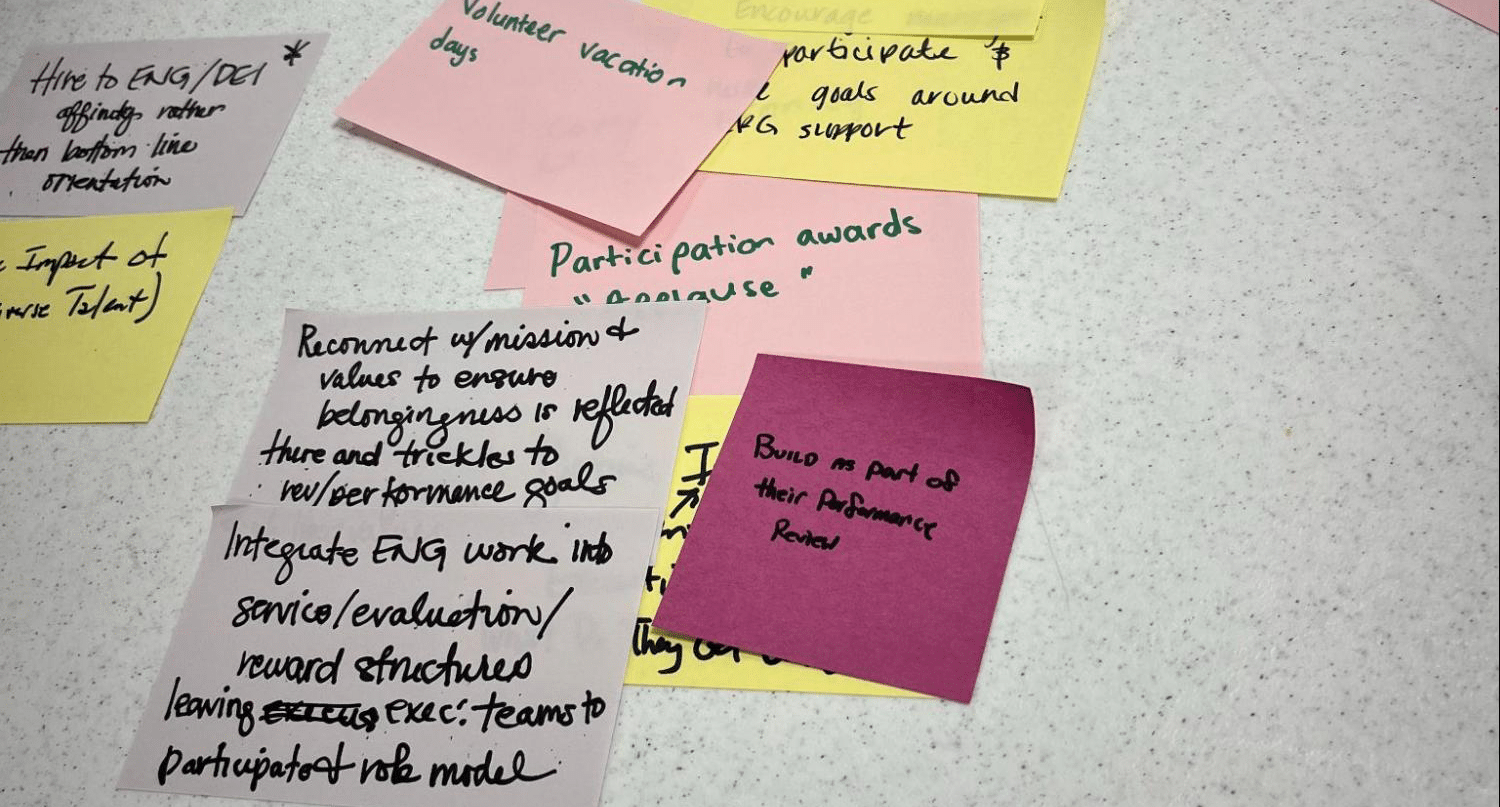 Hire to ENG/DEI *
affinity rather
then bottom line
orientation
Impact of
Talent)
Volunteer vacation
days
Encourage
participate &
goals around
support
Participation awards
"Applause"
Reconnect w/mission &
values to ensure
belongingness is reflected
there and trickles to
rev/performance goals
Integrate ENG work into
service/evaluation/
reward structures
leaving exec. teams to
participate & role model
BUILD AS part of
their Performance
Review
They